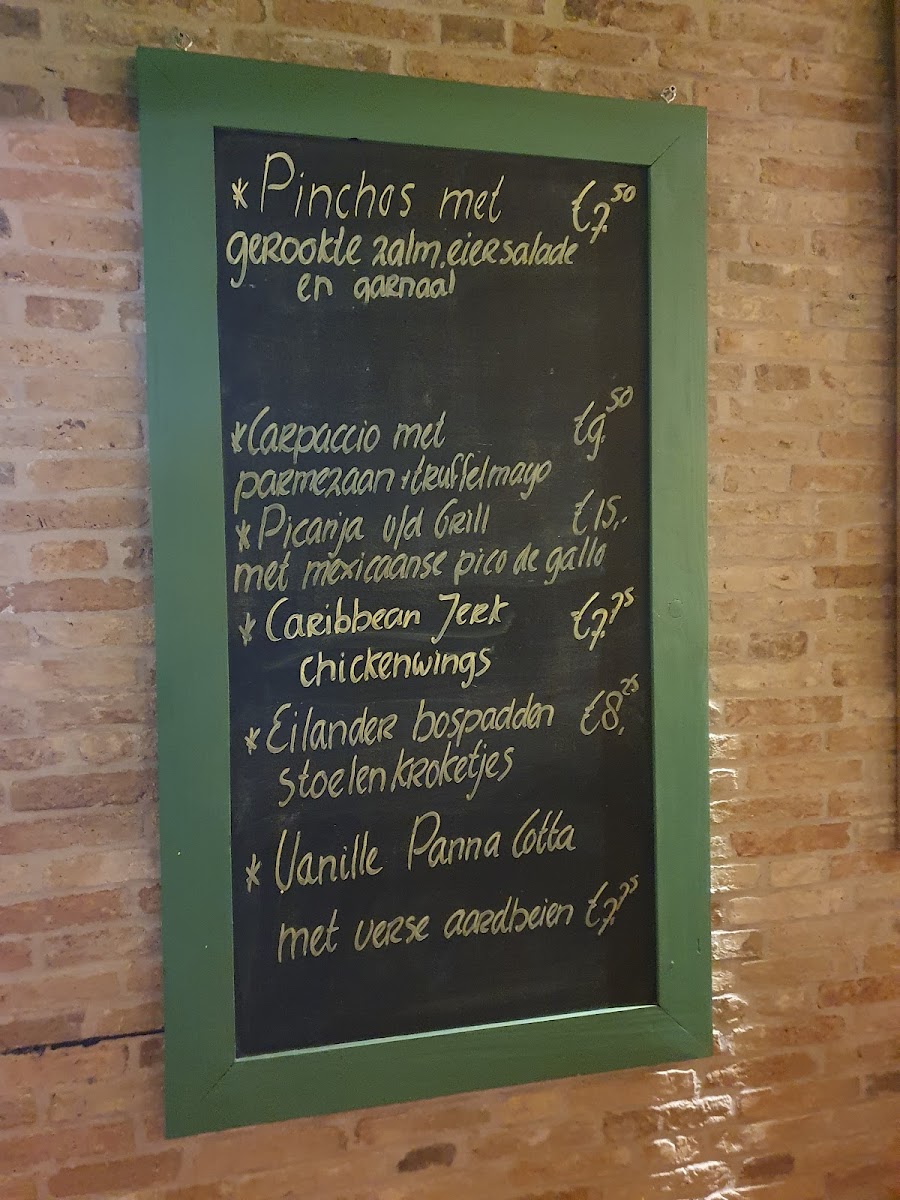 * Pinchos met €7.50
gerookte zalm, eiersalade
en garnaal
* Carpaccio met €9.50
parmezaan + truffelmayo
* Picanja v/d Grill €15,-
met mexicaanse pico de gallo
* Caribbean Jerk €7.75
chickenwings
* Eilander bospadden €8,25
stoelenkroketjes
* Vanille Panna Cotta
met verse aardbeien €7.75